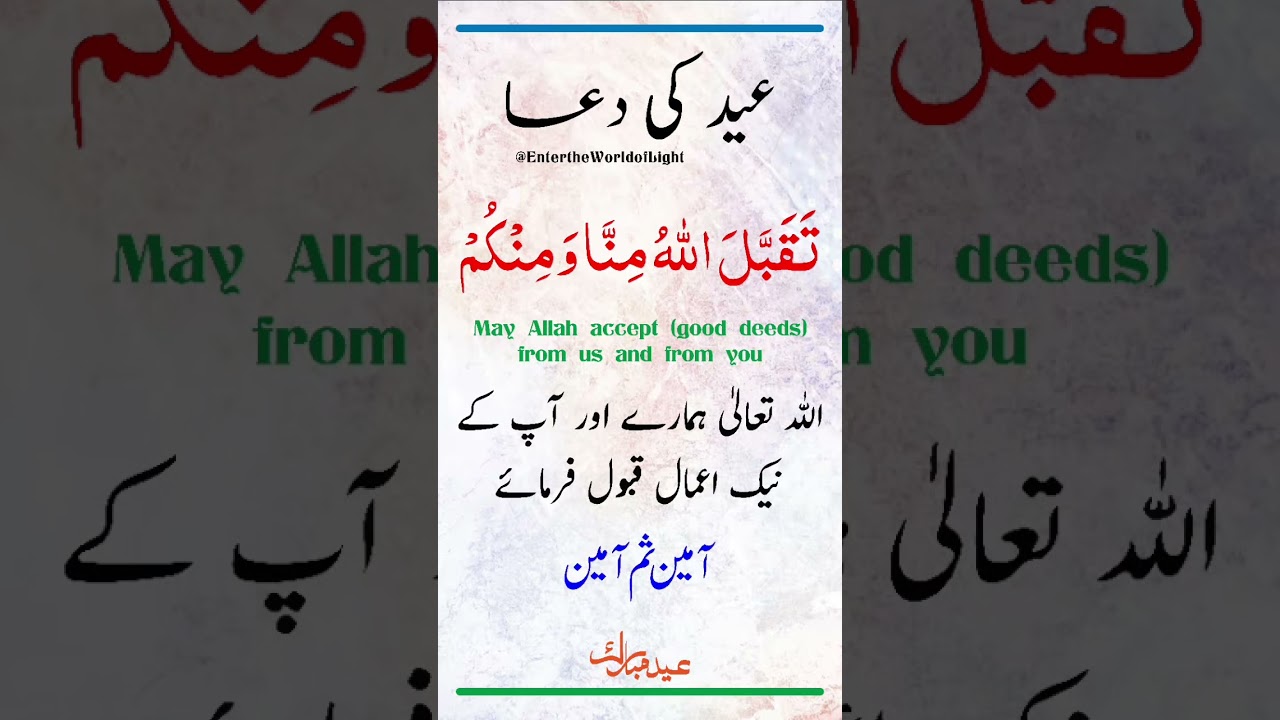 عید کی دعا
@EntertheWorldofLight
تَقَبَّلَ اللّٰهُ مِنَّا وَمِنْكُمْ
May Allah accept (good deeds)
from us and from you
اللہ تعالیٰ ہمارے اور آپ کے
نیک اعمال قبول فرمائے
آمین ثم آمین
عید مبارک